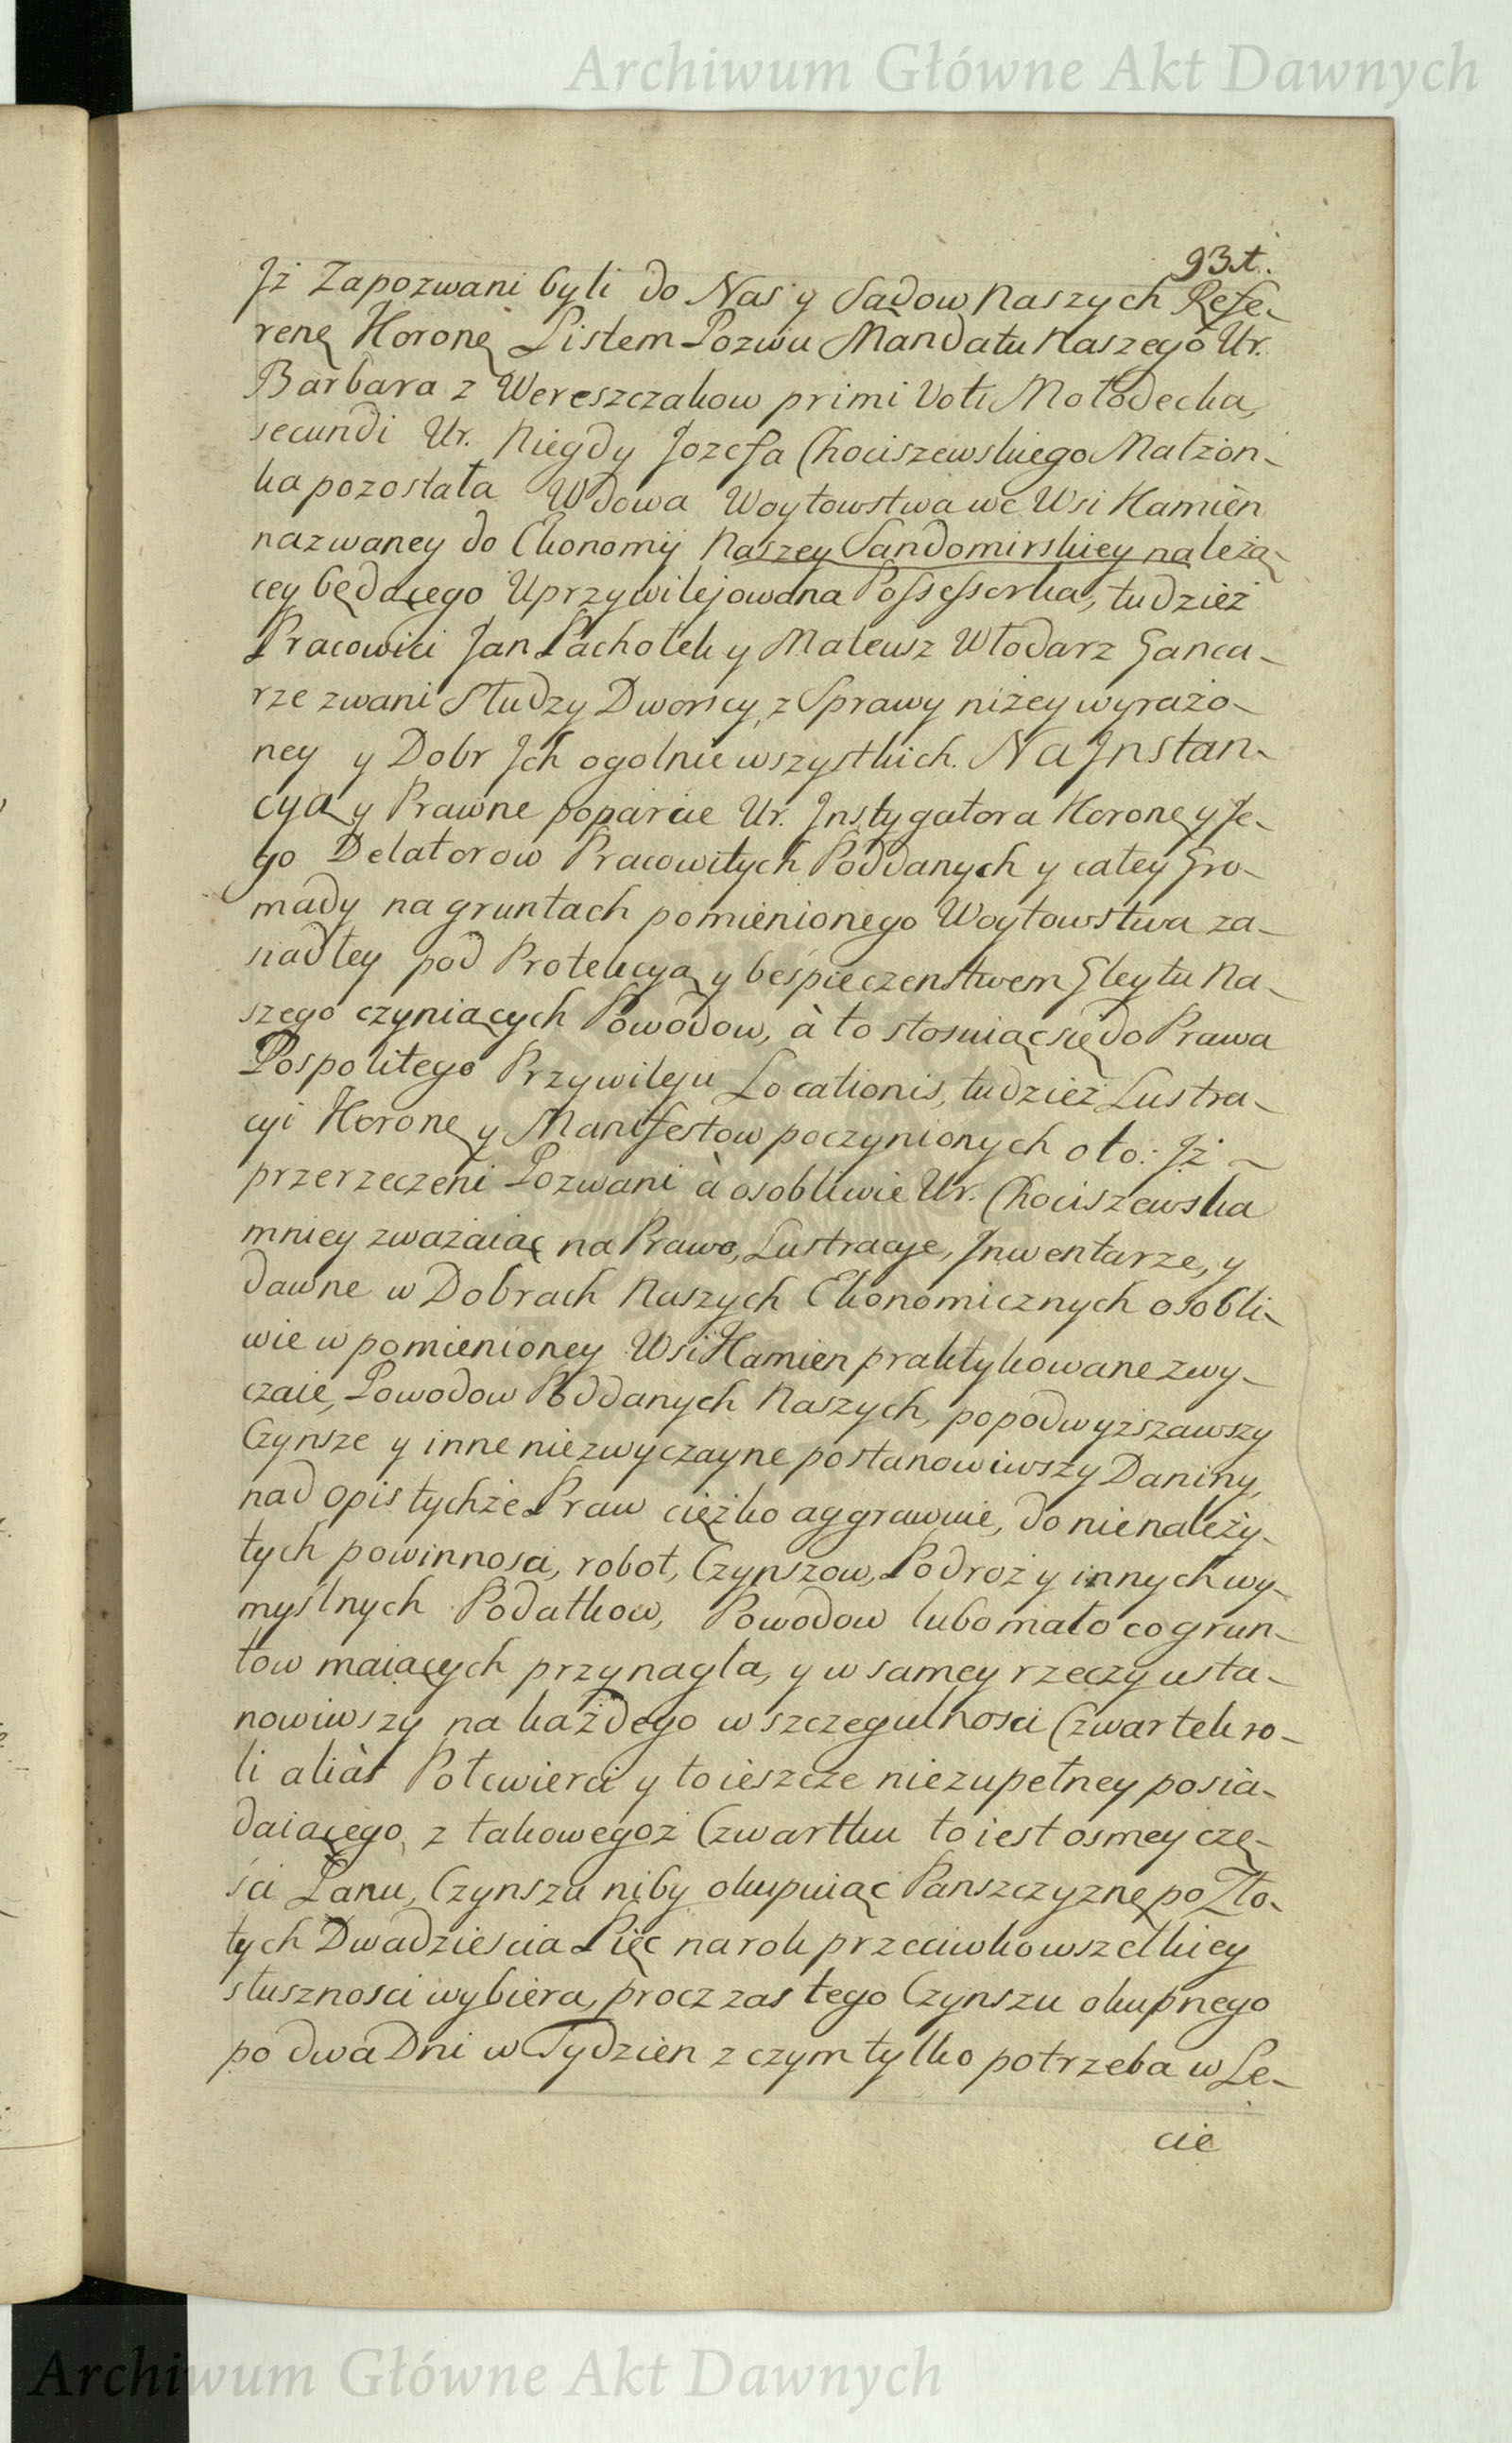 Archiwum Główne Akt Dawnych
93t.
Jż Zapozwani byli do Nas y Sądow Naszych Refe-
renę Koronę Listem Pozwu Mandatu Naszego Ur.
Barbara z Wereszczakow primi Voti Mołodecka,
secundi Ur. Niegdy Jozefa Chociszewskiego Małżon-
ka pozostała Wdowa Woytowstwa we Wsi Kamień
nazwaney do Ekonomij Naszey Sandomirskiey należą-
cey będącego Uprzywilejowana Possessorka, tudzież
Pracowici Jan Pachołek y Mateusz Włodarz Ganca-
rze zwani Słudzy Dworscy, z Sprawy niżey wyrażo-
ney y Dobr Jch ogolnie wszystkich. Na Jnstan-
cyą y Prawne poparcie Ur. Jnstygatora Koronę y Je-
go Delatorow Pracowitych Poddanych y całey Gro-
mady na gruntach pomienionego Woytowstwa za-
siadłey pod Protekcyą y bespieczenstwem Gleytu Na-
szego czyniących Powodow, à to stosuiąc się do Prawa
Pospolitego Przywileju Locationis, tudzież Lustra-
cyi Koronę y Manifestow poczynionych oto: Jż
przerzeczeni Pozwani à osobliwie Ur. Chociszewska
mniey zważaiąc na Prawo, Lustracye, Jnwentarze, y
dawne w Dobrach Naszych Ekonomicznych osobli-
wie w pomienioney Wsi Kamien praktykowane zwy-
czaie, Powodow Poddanych Naszych, popodwyższawszy
Czynsze y inne niezwyczayne postanowiwszy Daniny,
nad opis tychże Praw ciężko aggrawuie, do nienależy-
tych powinnosci, robot, Czynszow, Podroż y innych wy-
myślnych Podatkow, Powodow lubo mało co grun-
tow maiących przynagla, y w samey rzeczy usta-
nowiwszy na każdego w szczegulnosci Czwartek ro-
li aliàs Połcwierci y to ieszcze niezupełney posia-
daiącego, z takowegoż Czwartku to iest osmey czę-
ści Łanu, Czynszu niby okupuiąc Panszczyznę po Zło-
tych Dwadzieścia Pięc na rok przeciwko wszelkiey
słusznosci wybiera, procz zas tego Czynszu okupnego
po dwa Dni w Tydzien z czym tylko potrzeba w Le-
cie
Archiwum Główne Akt Dawnych